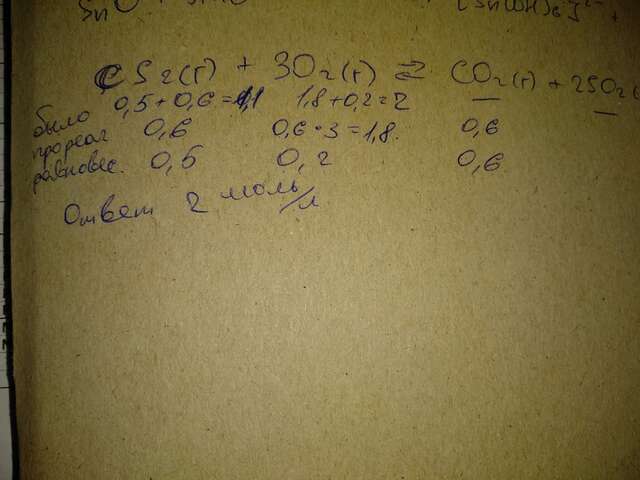 CS2(г) + 3O2(г) ⇄ CO2(г) + 2SO2(
было 0,5+0,6=1,1 1,8+0,2=2 — —
прореаг 0,6 0,6·3=1,8 0,6
равновес. 0,5 0,2 0,6
Ответ 2 моль/л